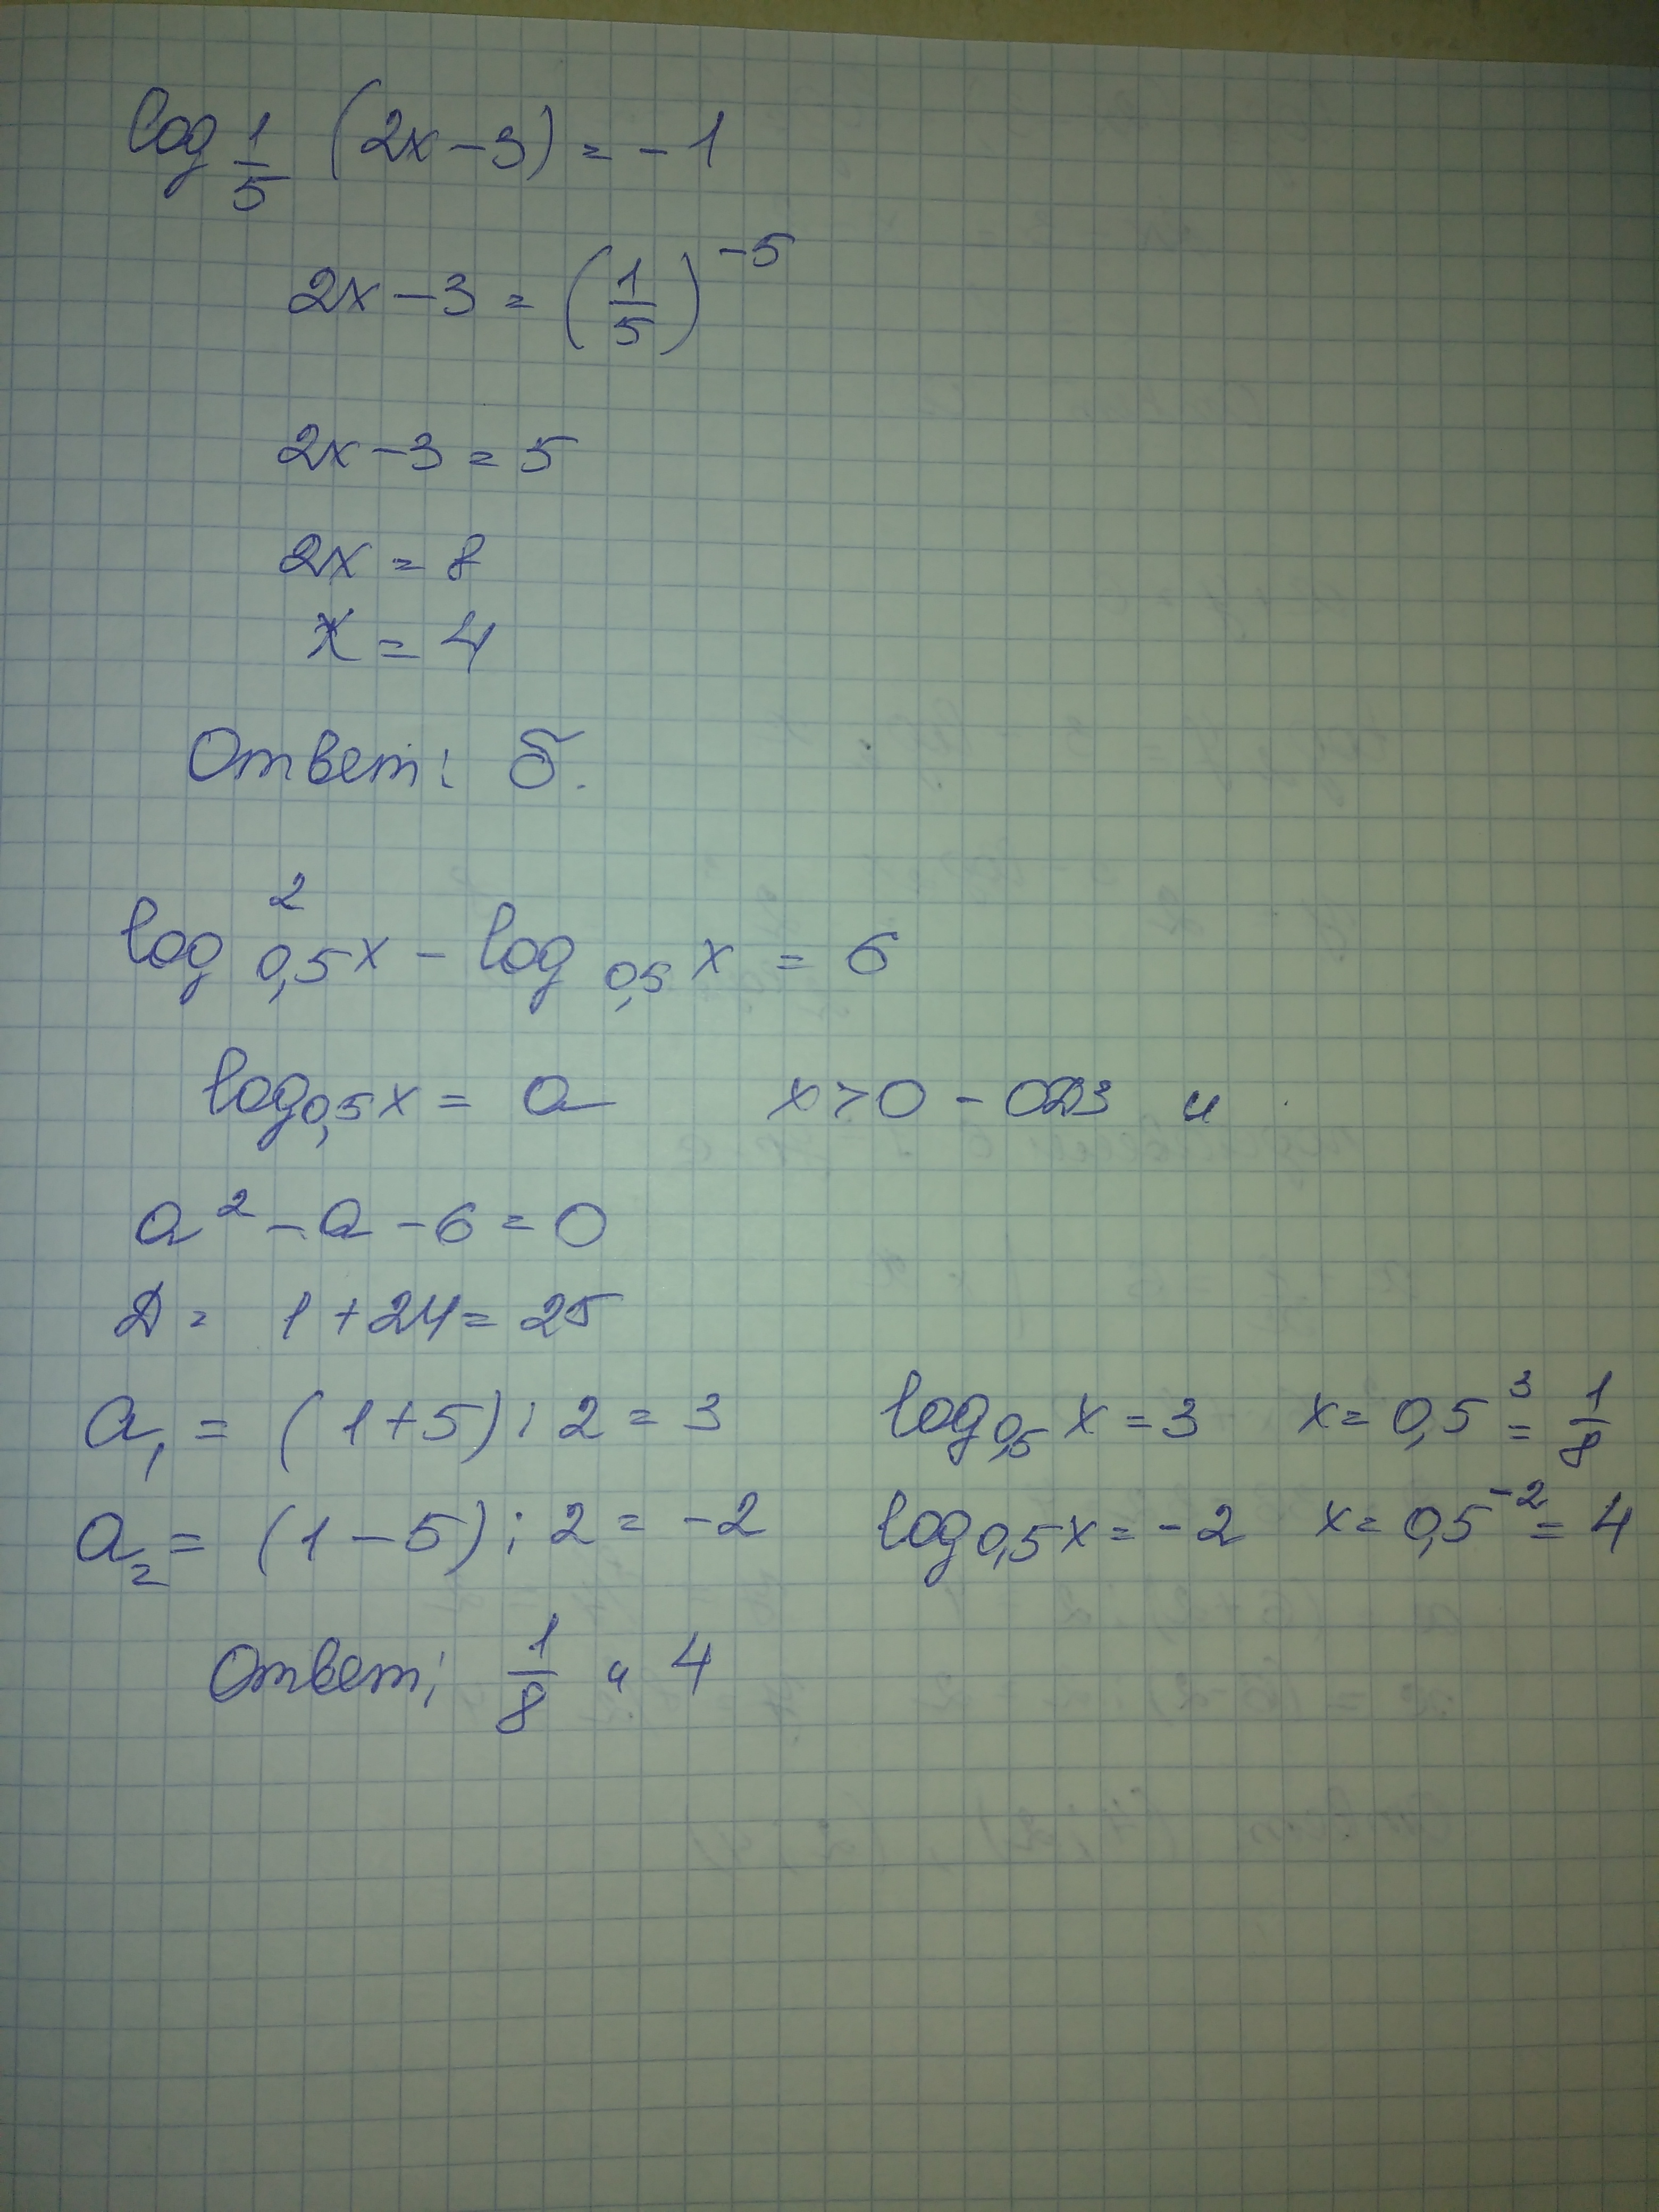 log 1/5 (2x-3) = -1
2x-3 = (1/5)^-5
2x-3 = 5
2x = 8
x = 4
Ответ: б.
log² 0,5 x - log 0,5 x = 6
log 0,5 x = a x>0 - ОДЗ и
a² - a - 6 = 0
Д = 1+24 = 25
a₁ = (1+5) : 2 = 3 log 0,5 x = 3 x = 0,5³ = 1/8
a₂ = (1-5) : 2 = -2 log 0,5 x = -2 x = 0,5^-2 = 4
Ответ: 1/8 и 4